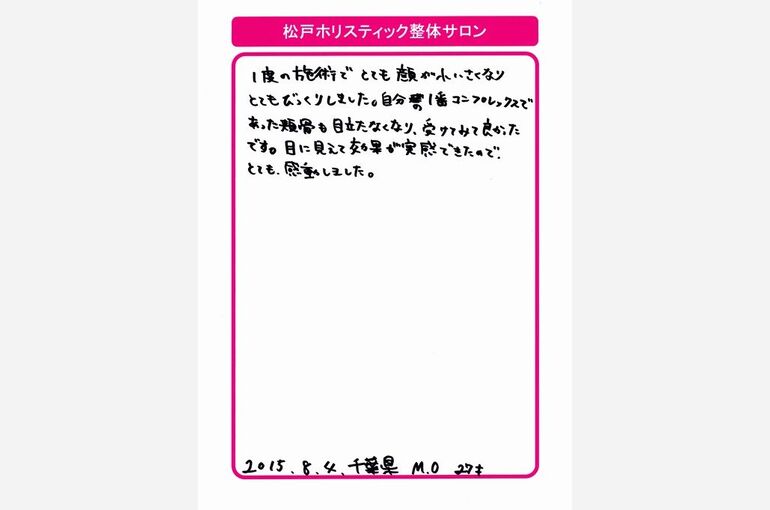 松戸ホリスティック整体サロン
1度の施術で とても 顔が小いさくなり
とてもびっくりしました。自分の1番コンプレックスで
あった頬骨も目立たなくなり、受けてみて良かった
です。目に見えて効果が実感できたので、
とても、感動しました。
2015.8.4. 千葉県 M.O 27才